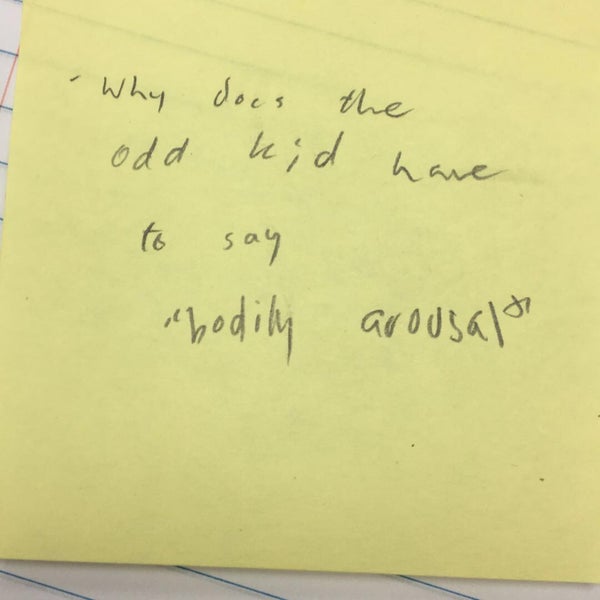 Why does the
odd kid have
to say
"bodily arousal"